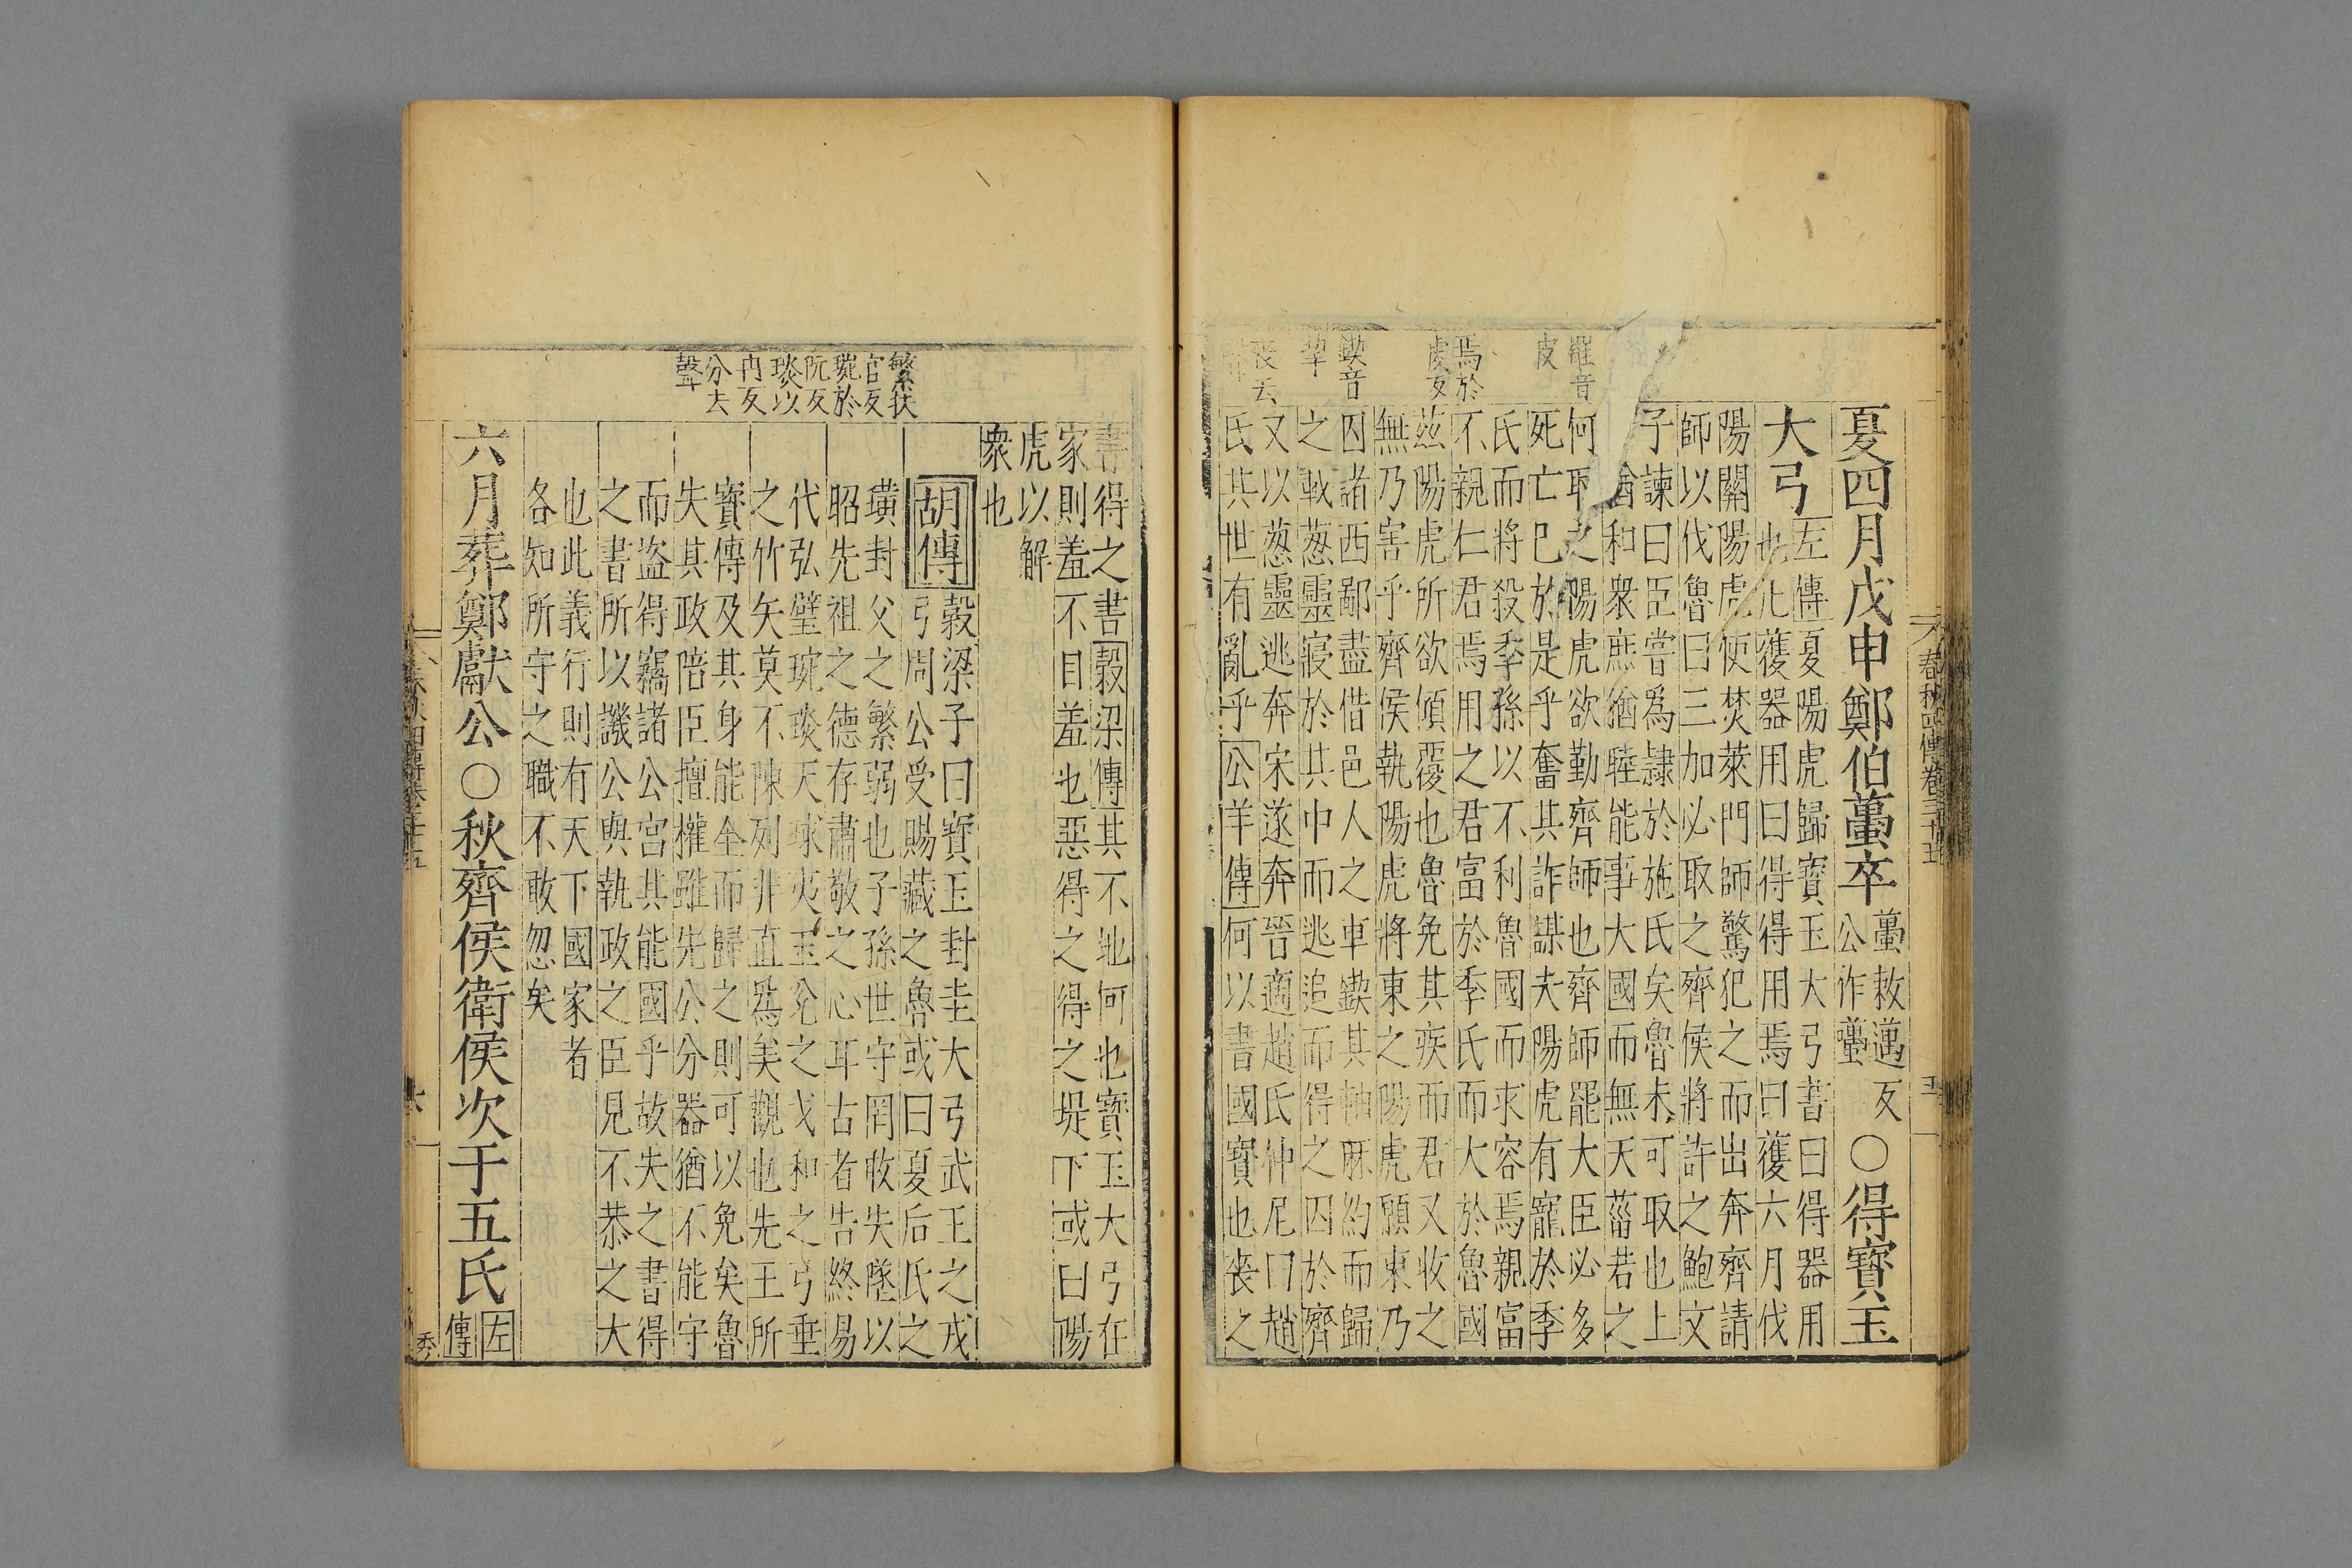 春秋四傳卷三十五
五
罷音
皮
焉於
虔反
鍥音
挈
喪去
聲
夏四月戊申鄭伯蠆卒 蠆敕邁反
公作囆 ○得寶玉
大弓 左傳 夏陽虎歸寶玉大弓書曰得器用
也凡獲器用曰得得用焉曰獲六月伐
陽關陽虎使焚萊門師驚犯之而出奔齊請
師以伐魯曰三加必取之齊侯將許之鮑文
子諫曰臣嘗爲隸於施氏矣魯未可取也上
猶和衆庶猶睦能事大國而無天菑若之
何取之陽虎欲勤齊師也齊師罷大臣必多
死亡已於是乎奮其詐謀夫陽虎有寵於季
氏而將殺季孫以不利魯國而求容焉親富
不親仁君焉用之君富於季氏而大於魯國
茲陽虎所欲傾覆也魯免其疾而君又收之
無乃害乎齊侯執陽虎將東之陽虎願東乃
囚諸西鄙盡借邑人之車鍥其軸麻約而歸
之載葱靈寢於其中而逃追而得之囚於齊
又以葱靈逃奔宋遂奔晉適趙氏仲尼曰趙
氏其世有亂乎 公羊傳 何以書國寶也喪之
書得之書 穀梁傳 其不地何也寶玉大弓在
家則羞不目羞也惡得之得之堤下或曰陽
虎以解
衆也
繁扶
官反
琬於
阮反
琰以
冉反
分去
聲
胡傳 穀梁子曰寶玉封圭大弓武王之戎
弓周公受賜藏之魯或曰夏后氏之
璜封父之繁弱也子孫世守罔敢失墜以
昭先祖之德存肅敬之心耳古者告終易
代弘璧琬琰天球夷玉兌之戈和之弓垂
之竹矢莫不陳列非直爲美觀也先王所
寶傳及其身能全而歸之則可以免矣魯
失其政陪臣擅權雖先公分器猶不能守
而盜得竊諸公宮其能國乎故失之書得
之書所以譏公與執政之臣見不恭之大
也此義行則有天下國家者
各知所守之職不敢忽矣
六月葬鄭獻公○秋齊侯衛侯次于五氏 左
傳
春秋四傳卷三十五
六
秀